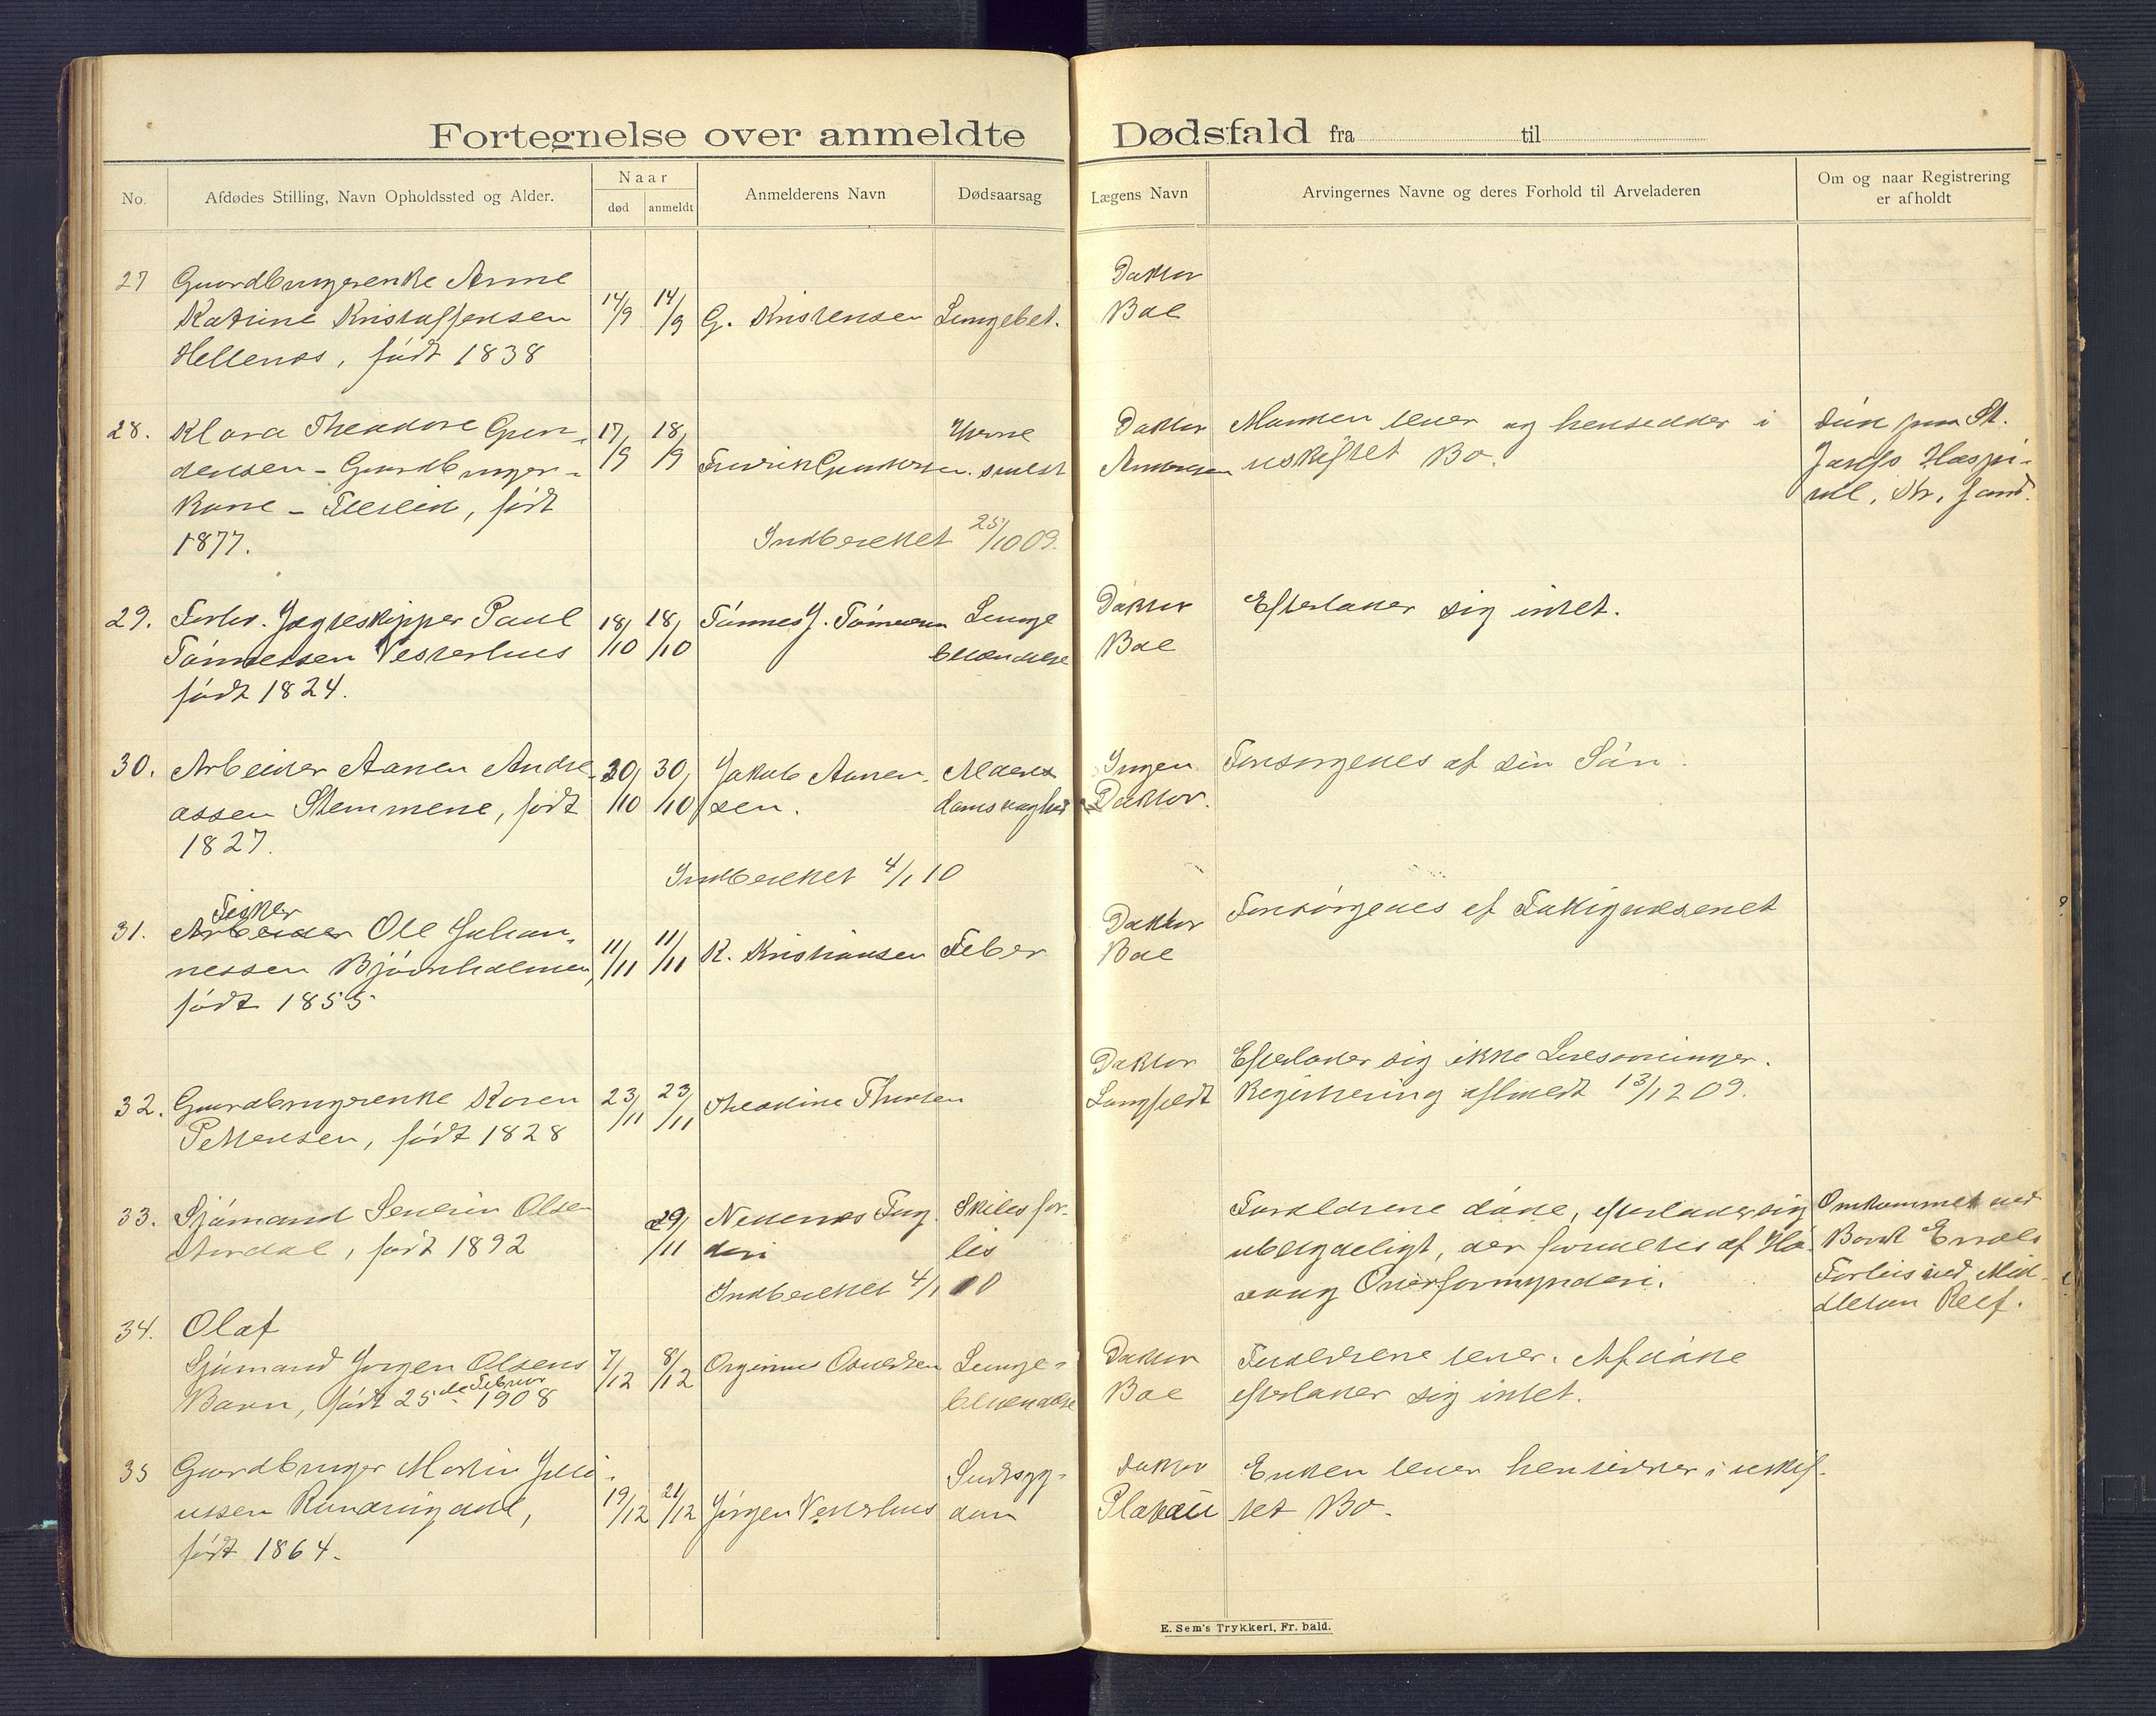 Fortegnelse over anmeldte Dødsfald fra til
No.
Afdødes Stilling, Navn Opholdssted og Alder.
Naar
død
anmeldt
Anmelderens Navn
Dødsaarsag
Lægens Navn
Arvingernes Navne og deres Forhold til Arveladeren
Om og naar Registrering
er afholdt
27 Gaardbrugerenke Anne
Katrine Kristoffersen
Hellenes, født 1838
14/9 14/9 G. Kristensen Lungebet.
Doktor
Boe
28. Klara Theodore Gun-
dersen - Gaardbruger-
kone - født
1877.
17/9 18/9 Fredrik Gundersen
svulst
Indberettet 25/10 09.
Doktor
Andersen
Manden lever og hensidder i
uskiftet Bo.
død paa St.
Josefs Hospi-
tal, Kr. sand.
29. Forhv. Jagteskipper Paul
Tønnessen Vesterhus
født 1824.
18/10 18/10 Tønnes J. Tønnessen Lunge
betændelse
Doktor
Boe
Efterlader sig intet.
30. Arbeider Aanen Andre-
assen Stemmene, født
1827.
30/10 30/10 Jakob Aanen-
sen.
Alders
domssvaghed
Ingen
Doktor.
Forsørgedes af sin Søn.
Indberettet 4/1 10
31. Fisker
Arbeider Ole Johan-
nessen Bjørnholmen,
født 1855
11/11 11/11 K. Kristiansen Feber
Doktor
Boe
Forsørgedes af Fattigvæsenet
32. Gaardbrugerenke Karen
Pettersen, født 1828
23/11 23/11 Theodine Thorsen
Doktor
Langfeldt
Efterlader sig ikke Livsarvinger.
Registrering afholdt 13/12 09.
33. Sjømand Severin Olsen
Aardal, født 1892
29/11 Nedenes Fog-
deri
Skibsfor-
lis
Indberettet 4/1 10
Forældrene døde, efterlader sig
ubetydeligt, der forvaltes af Hø-
vaag Overformynderi.
Omkommet ved
Bark Errols
Forlis ved Mid-
dleton Reef.
34. Olaf
Sjømand Jørgen Olsens
Barn, født 25de Februar 1908
7/12 8/12 Osvedsen Lunge-
betændelse
Doktor
Boe
Forældrene lever. Afdøde
efterlader sig intet.
35 Gaardbruger Martin Juli-
ussen
født 1864.
19/12 21/12 Jørgen Vesterhus
Sindssyg-
dom
Doktor
Enken lever hensidder i uskif-
tet Bo.
E. Sem's Trykkeri, Fr. hald.